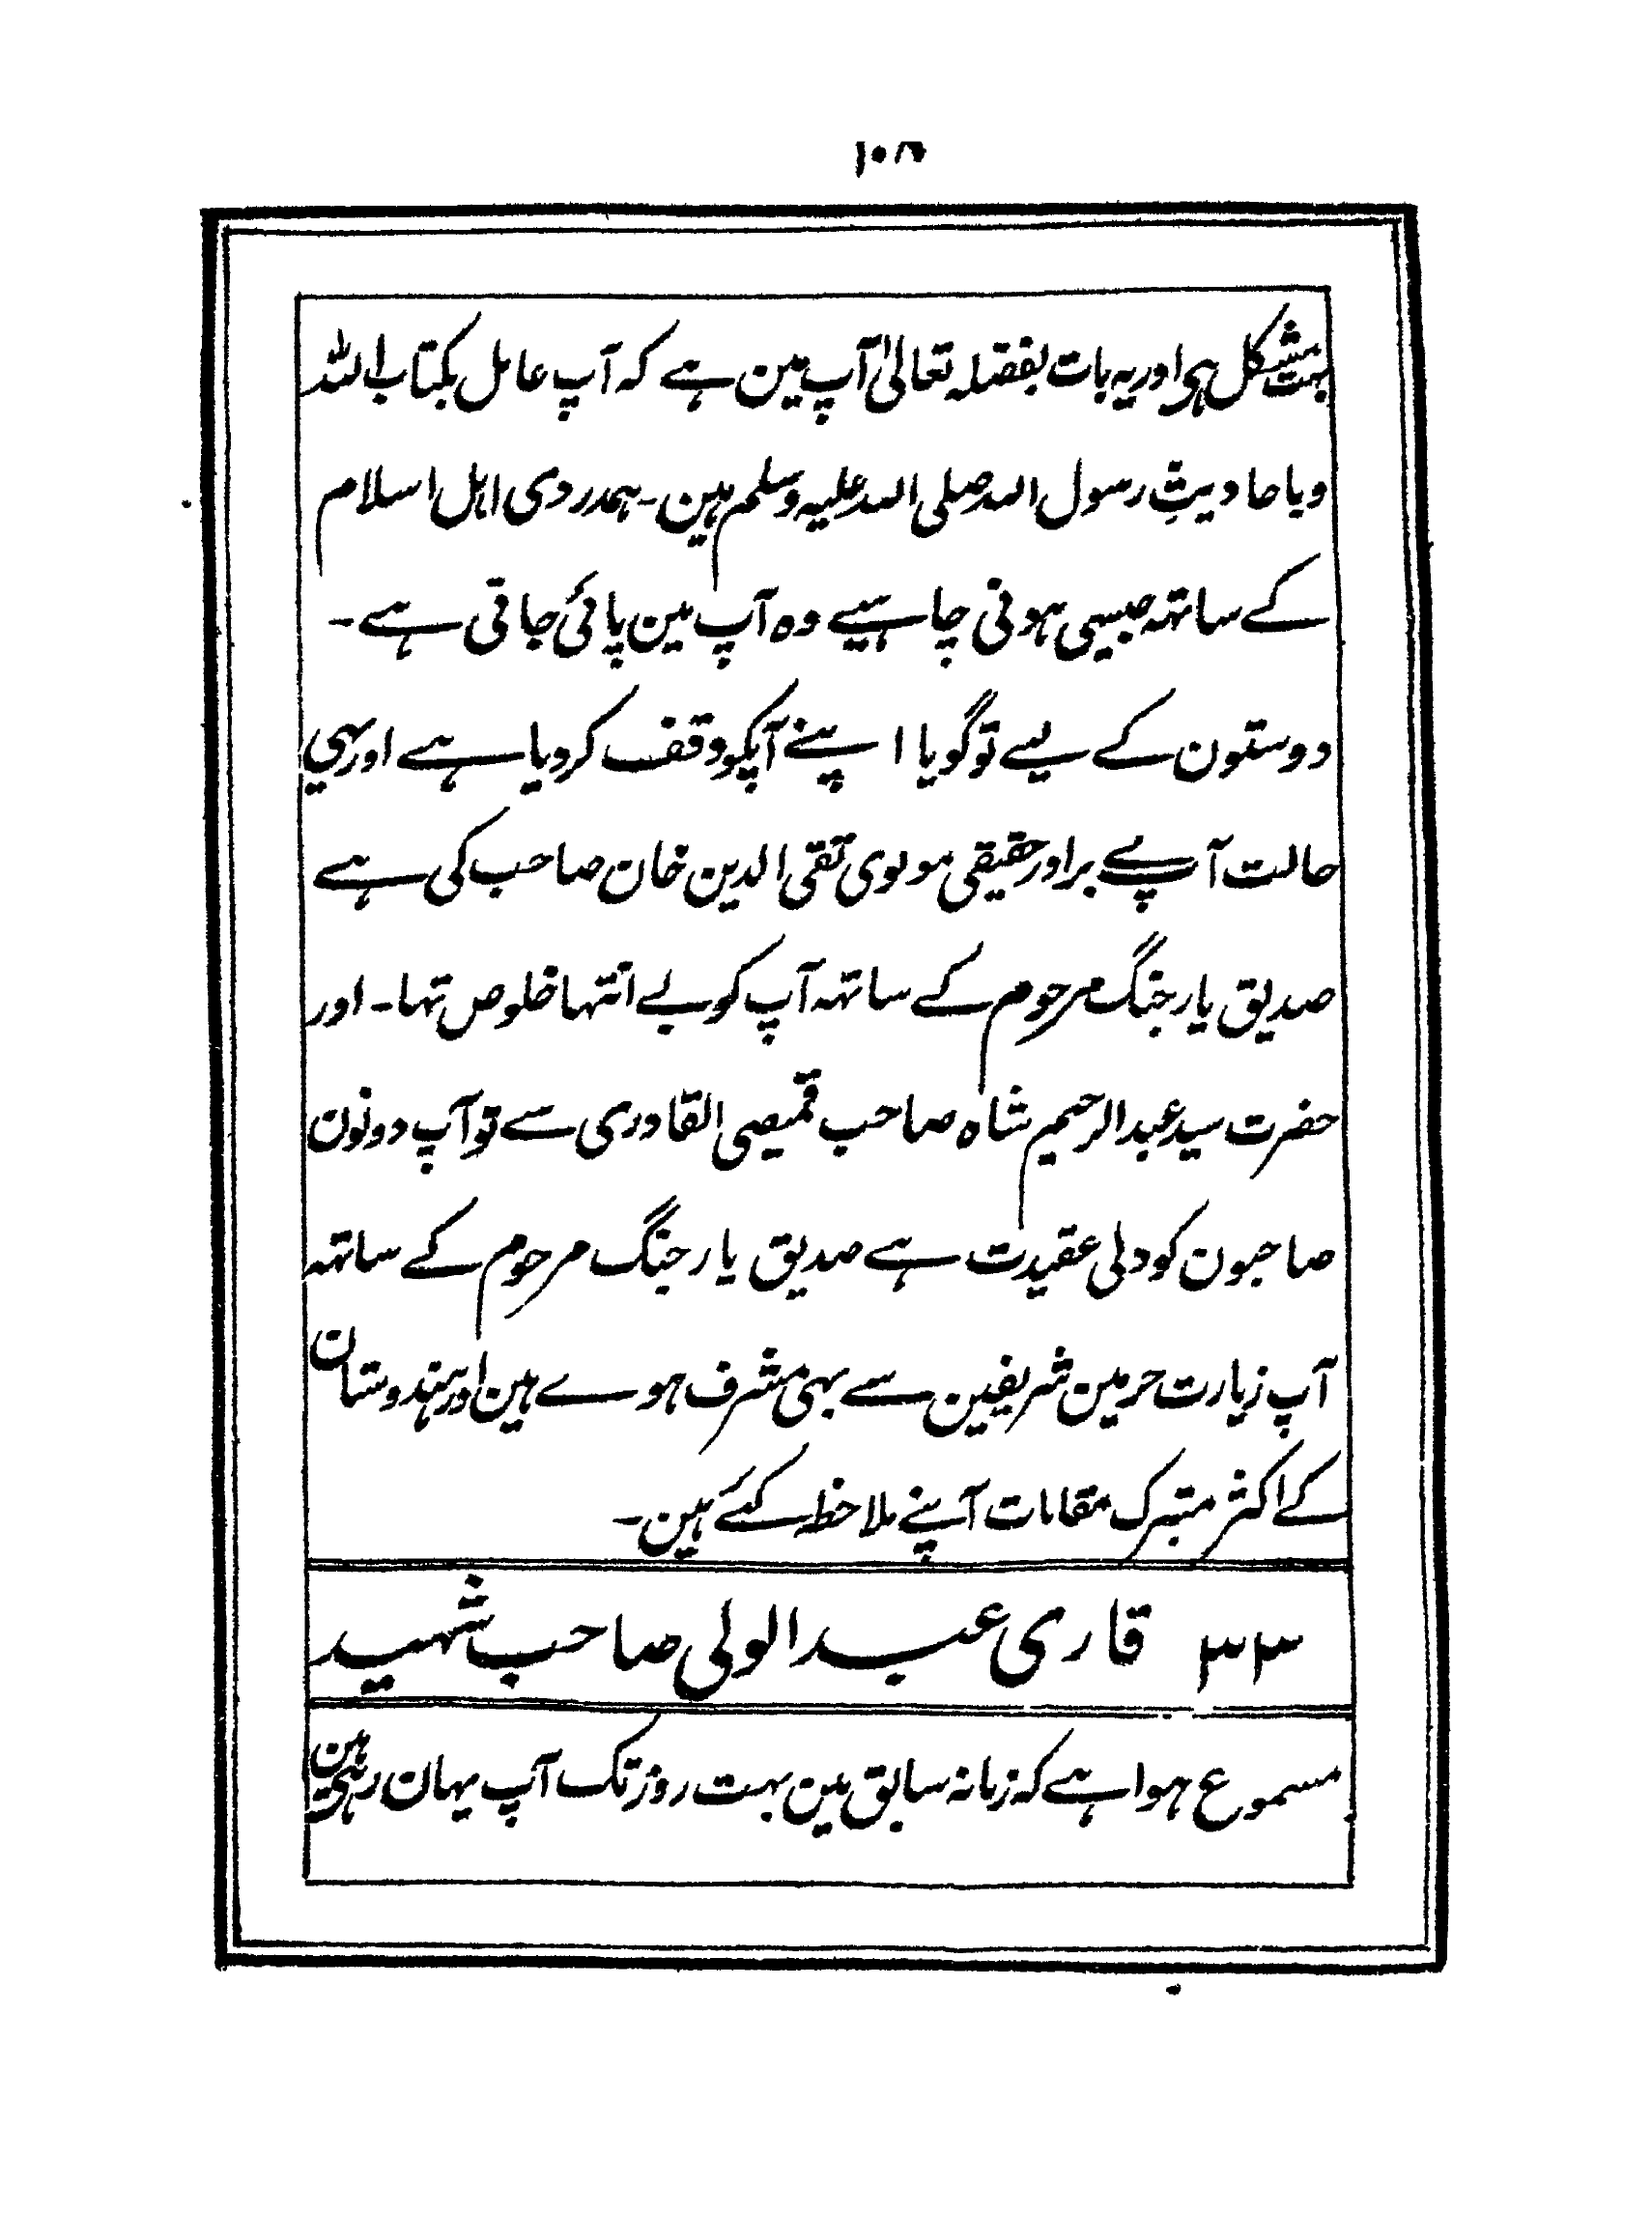 ۱۰۸
بہت مشکل ہی اور یہ بات بفضلہ تعالیٰ آپ مین ہے کہ آپ عامل بکتاب اللہ
وباحادیثِ رسول اللہ صلی اللہ علیہ وسلم ہین۔ ہمدردی اہل اسلام
کے ساتھہ جیسی ہونی چاہیے وہ آپ مین پائی جاتی ہے۔
دوستون کے لیے تو گویا اپنے آپکو وقف کردیا ہے اور یہی
حالت آپکے برادر حقیقی مولوی تقی الدین خان صاحب کی ہے
صدیق یار جنگ مرحوم کے ساتھہ آپ کو بے انتہا خلوص تہا۔ اور
حضرت سید عبدالرحیم شاہ صاحب قمیصی القادری سے تو آپ دونون
صاحبون کو دلی عقیدت ہے صدیق یار جنگ مرحوم کے ساتھہ
آپ زیارت حرمین شریفین سے بہی مشرف ہوے ہین اور ہندوستان
کے اکثر متبرک مقامات آپنے ملاحظہ کئے ہین۔
۳۳ قاری عبدالولی صاحب شہید
مسموع ہوا ہے کہ زمانہ سابق مین بہت روز تک آپ یہان رہی ہین